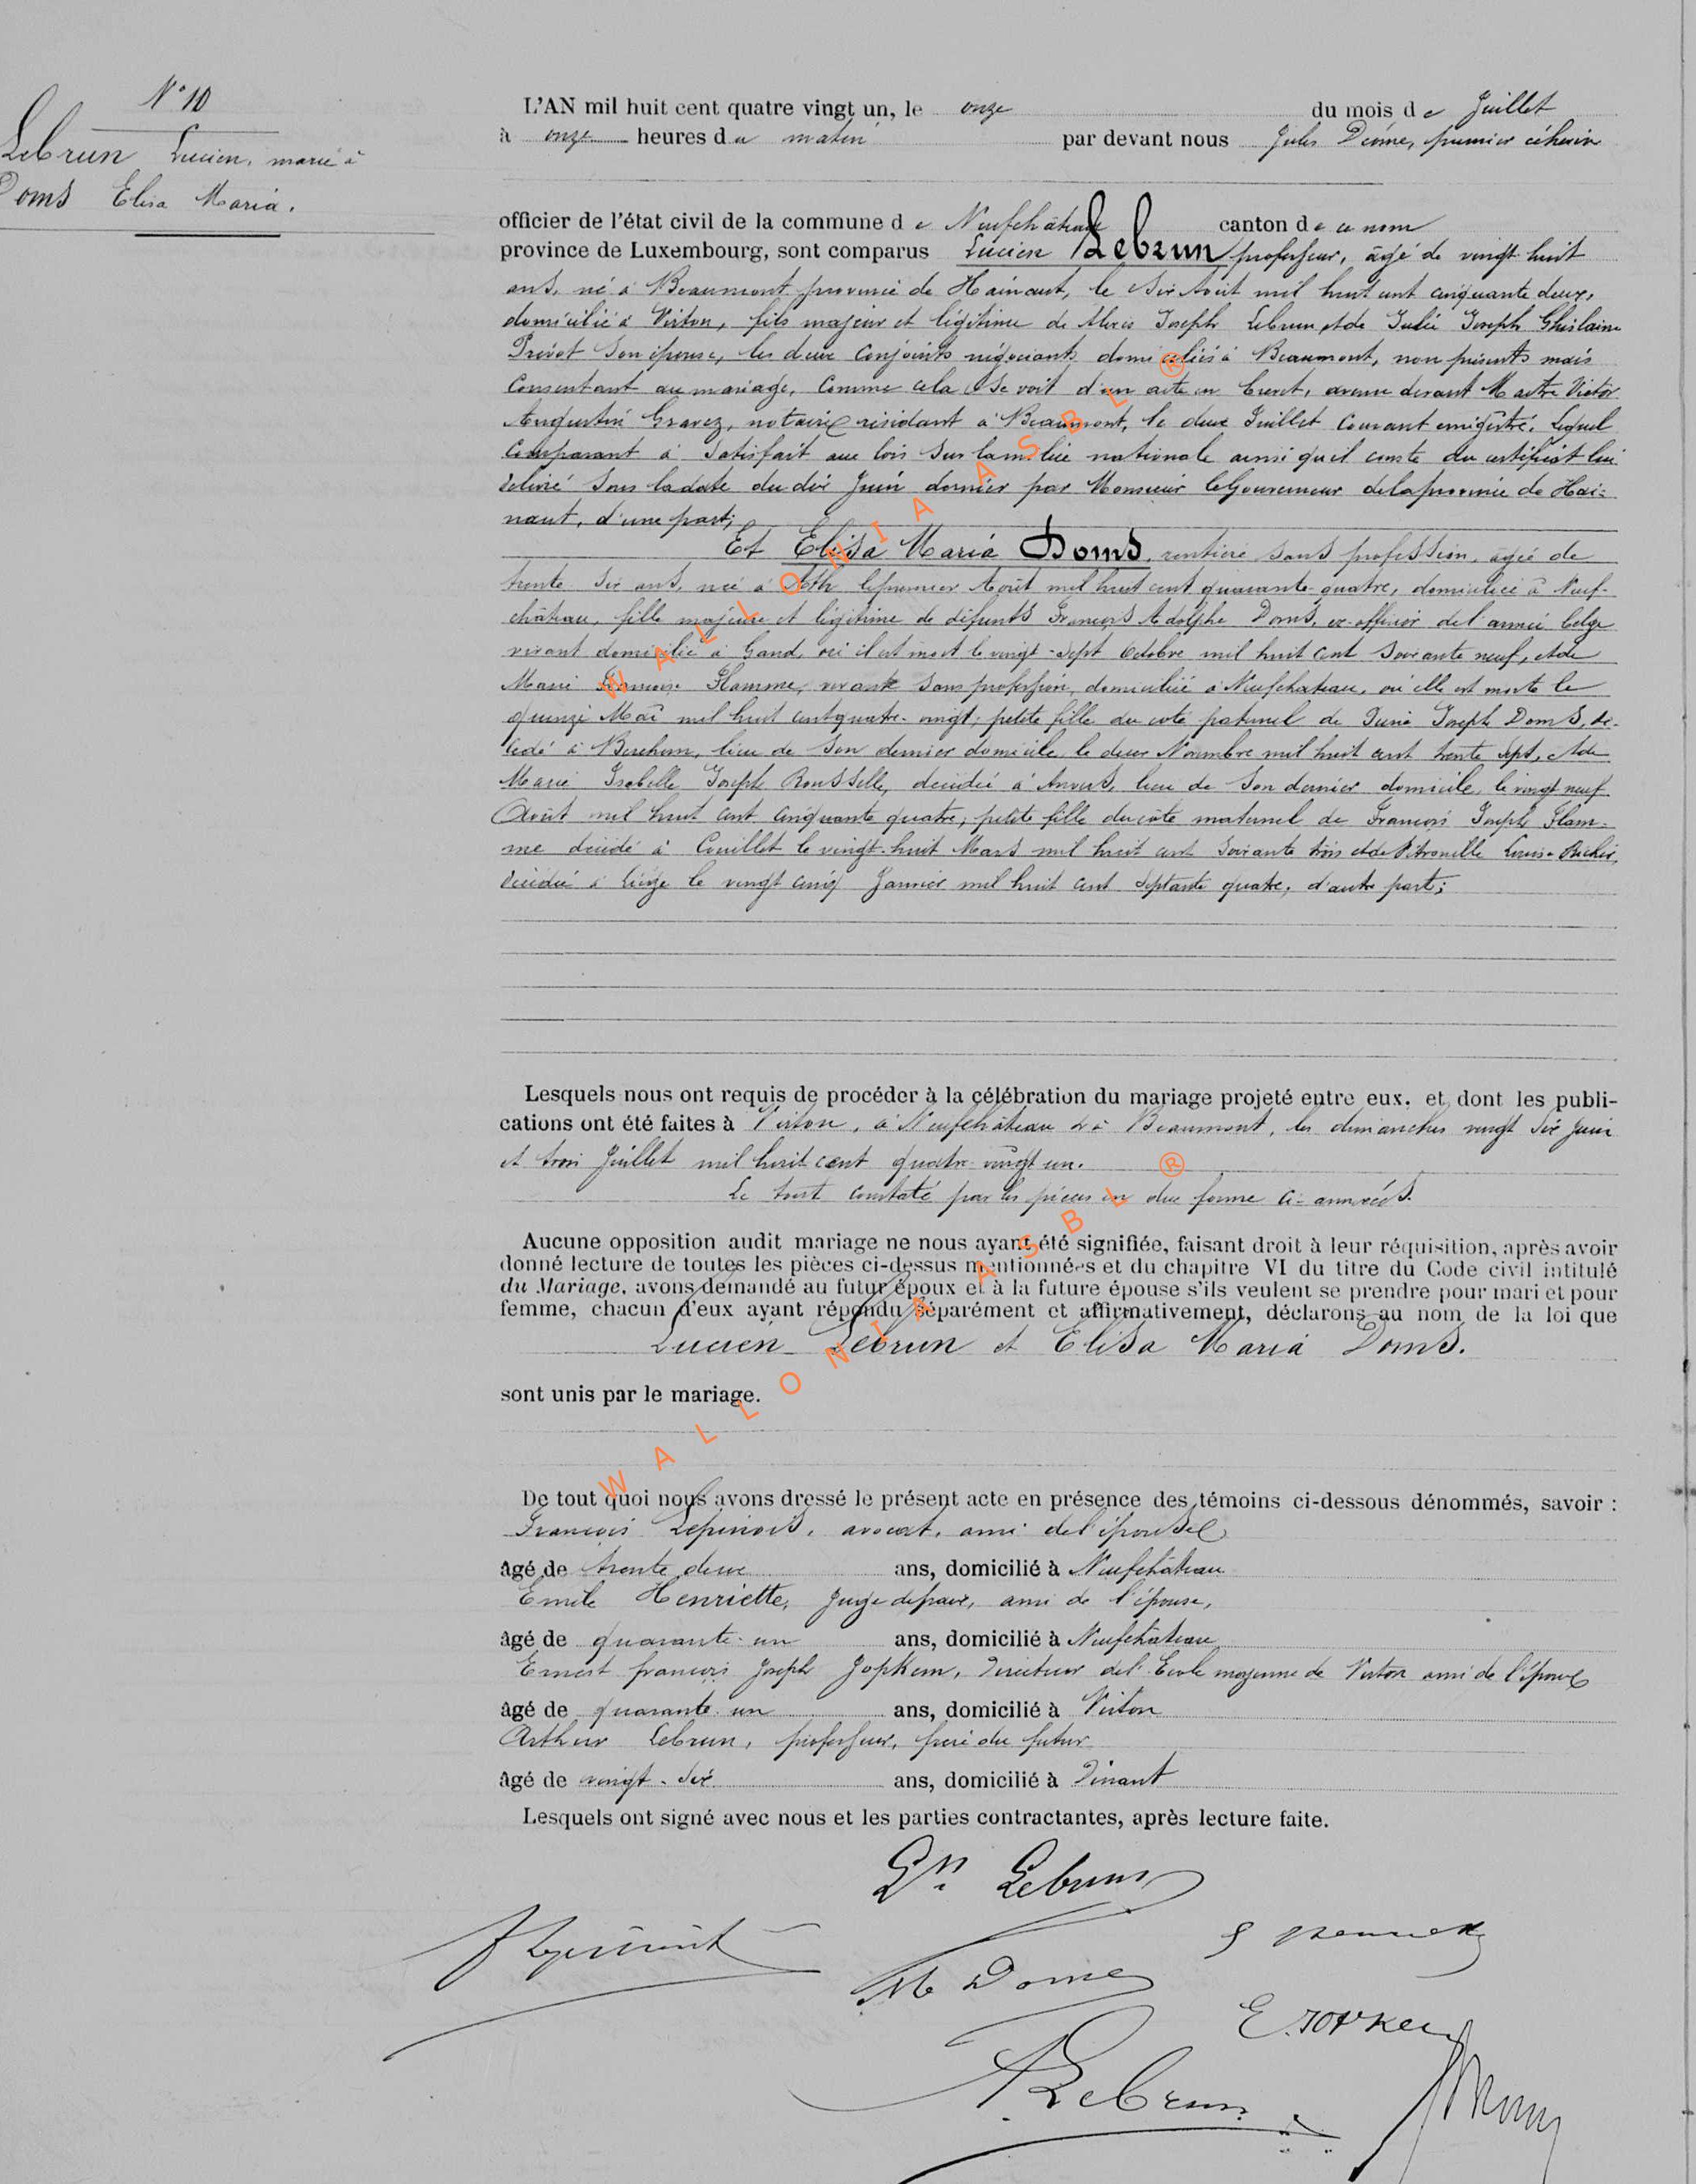 N° 10
Lebrun Lucien, marié à
Doms Elisa Maria.
L'AN mil huit cent quatre vingt un, le onze du mois de Juillet
à onze heures du matin par devant nous Jules premier échevin
officier de l'état civil de la commune de Neufchâteau canton de ce nom
province de Luxembourg, sont comparus Lucien Lebrun professeur, âgé de vingt huit
ans, né à Beaumont province de Hainaut, le six Août mil huit cent cinquante deux,
domicilié à Virton, fils majeur et légitime de Alexis Joseph Lebrun et de Julie Joseph Ghislaine
Prévot son épouse, les deux conjoints négociants domiciliés à Beaumont, non présents mais
consentant au mariage, comme cela se voit d'un acte en brevet, avenu devant Maitre Victor
Augustin Gravez, notaire résidant à Beaumont, le deux Juillet courant enregistré. Lequel
comparant à satisfait aux lois sur la milice nationale ainsi qu'il conste du certificat lui
délivré sous la date du dix Juin dernier par Monsieur le Gouverneur de la province de Hai-
naut, d'une part;
Et Elisa Maria Doms, rentière sans profession, agée de
trente six ans, née à Ath le premier Août mil huit cent quarante-quatre, domiciliée à Neuf-
château, fille majeure et légitime de défunts François Adolphe Doms, ex-officier de l'armée belge
vivant domicilié à Gand, où il est mort le vingt-sept Octobre mil huit cent soixante neuf, et de
Marie Flamme, vivante sans profession, domiciliée à Neufchateau, où elle est morte le
quinze Mai mil huit cent quatre-vingt; petite fille du coté paternel de Joseph Doms, dé-
cédé à Berchem, lieu de son dernier domicile le deux Novembre mil huit cent trente sept, et de
Marie Isabelle Joseph Rousselle, décédée à Anvers, lieu de son dernier domicile, le vingt neuf
Août mil huit cent cinquante quatre, petite fille du côté maternel de François Joseph Flam-
me décédé à Couillet le vingt-huit Mars mil huit cent soixante trois et de Pétronille Louise Richir,
décédée à Liège le vingt cinq Janvier mil huit cent septante quatre, d'autre part;
Lesquels nous ont requis de procéder à la célébration du mariage projeté entre eux, et dont les publi-
cations ont été faites à Virton, à Neufchâteau & à Beaumont, les dimanches vingt six Juin
et trois Juillet mil huit cent quatre-vingt un.
Le tout constaté par les pièces en due forme ci-annexées.
Aucune opposition audit mariage ne nous ayant été signifiée, faisant droit à leur réquisition, après avoir
donné lecture de toutes les pièces ci-dessus mentionnées et du chapitre VI du titre du Code civil intitulé
du Mariage, avons demandé au futur époux et à la future épouse s'ils veulent se prendre pour mari et pour
femme, chacun d'eux ayant répondu séparément et affirmativement, déclarons au nom de la loi que
Lucien Lebrun et Elisa Maria Doms.
sont unis par le mariage.
De tout quoi nous avons dressé le présent acte en présence des témoins ci-dessous dénommés, savoir :
François Lepinois, avocat, ami de l'épouse
âgé de trente deux ans, domicilié à Neufchâteau
Emile Henriette, Juge de paix, ami de l'épouse,
âgé de quarante-un ans, domicilié à Neufchâteau
Ernest françois Joseph Jopken, Directeur de l'Ecole moyenne de Virton ami de l'époux
âgé de quarante un ans, domicilié à Virton
Arthur Lebrun, professeur, frère du futur
âgé de vingt-six ans, domicilié à Dinant
Lesquels ont signé avec nous et les parties contractantes, après lecture faite.
Ln Lebrun
M Doms
E. Jopken
A Lebrun
WALLONIA ASBL ®
WALLONIA ASBL ®